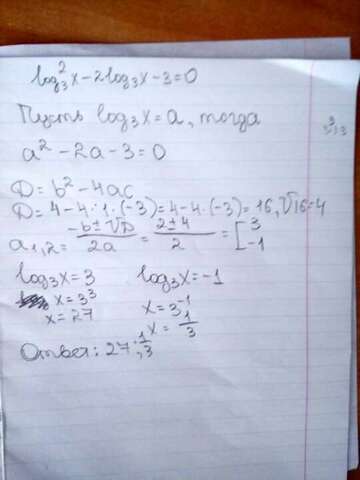 log₃²x-2log₃x-3=0
Пусть log₃x=a, тогда
a²-2a-3=0
D=b²-4ac
D=4-4·1·(-3)=4-4·(-3)=16, √16=4
a₁,₂= (-b±√D)/2a = (2±4)/2 = [3 -1
log₃x=3 log₃x=-1
x=3³ x=3⁻¹
x=27 x=1/3
Ответ: 27; 1/3